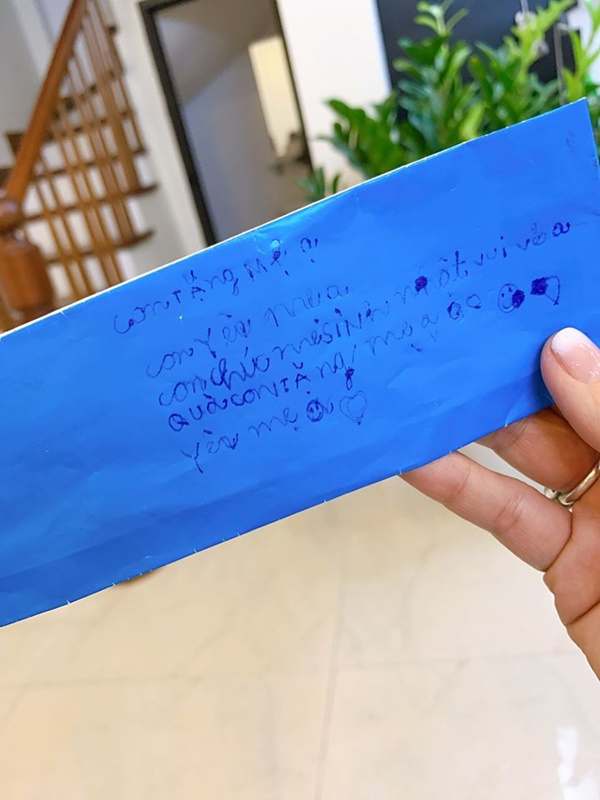 con TẶng mẹ ạ
con yêu mẹ ạ
con chúc mẹ sinh nhật vui vẻ ạ
QUÀ CON TẶng mẹ ạ
yêu mẹ ạ